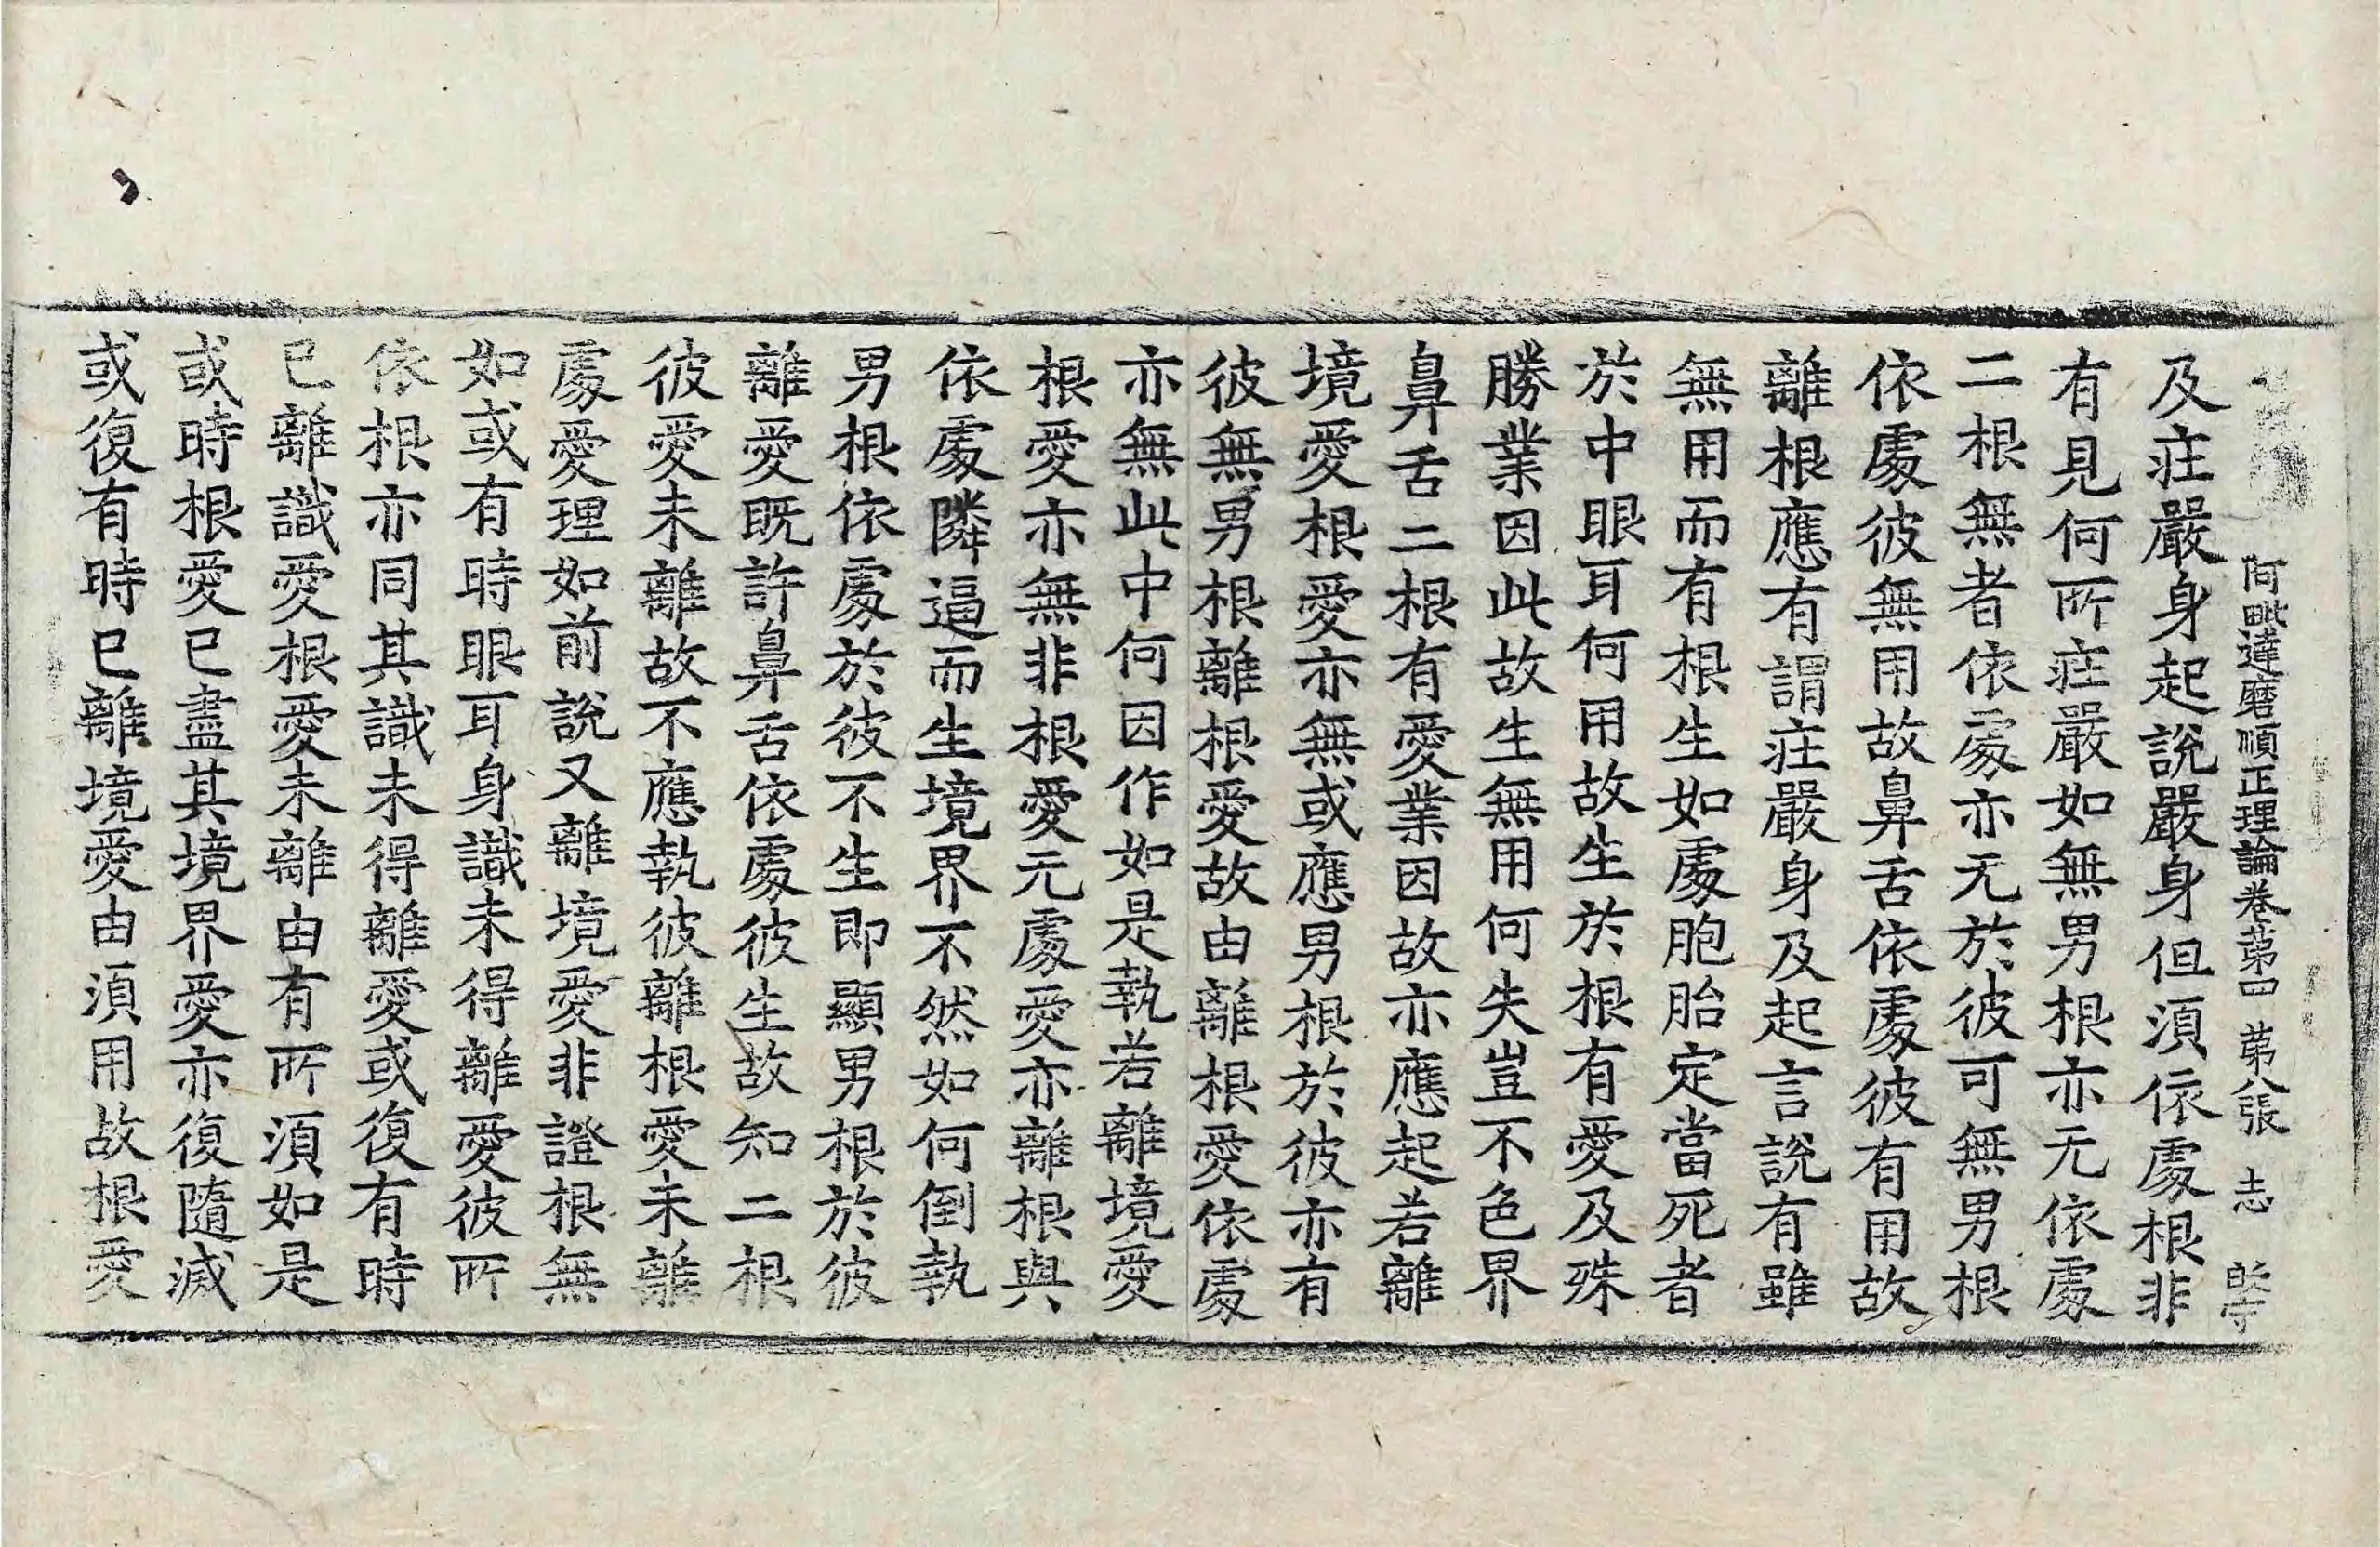 阿毗達磨順正理論卷苐四 苐八張 志
及㽵嚴身起說嚴身但湏依處根非
有見何所㽵嚴如無男根亦无依處
二根無者依處亦无於彼可無男根
依處彼無用故鼻舌依處彼有用故
離根應有謂㽵嚴身及起言說有雖
無用而有根生如處胞胎定當死者
於中眼耳何用故生於根有愛及殊
勝業因此故生無用何失豈不色界
鼻舌二根有愛業因故亦應起若離
境愛根愛亦無或應男根於彼亦有
彼無男根離根愛故由離根愛依處
亦無此中何因作如是執若離境愛
根愛亦無非根愛无處愛亦離根與
依處隣逼而生境界不然如何倒執
男根依處於彼不生即顯男根於彼
離愛既許鼻舌依處彼生故知二根
彼愛未離故不應執彼離根愛未離
處愛理如前說又離境愛非證根無
如或有時眼耳身識未得離愛彼所
依根亦同其識未得離愛或復有時
已離識愛根愛未離由有所湏如是
或時根愛已盡其境界愛亦復隨滅
或復有時已離境愛由湏用故根愛